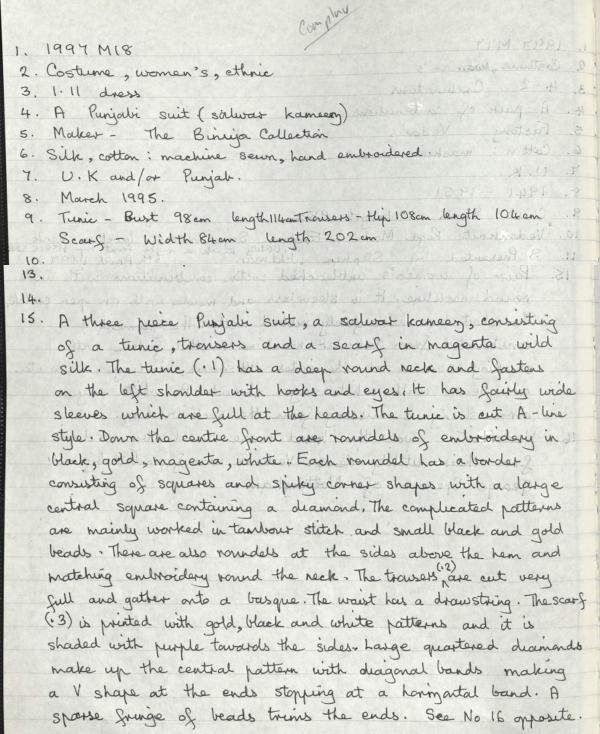 1. 1997 M18
2. Costume, women's, ethnic
3. 1.11 dress
4. A Punjabi suit (salwar kameez)
5. Maker - The Binija Collection
6. Silk, cotton: machine sewn, hand embroidered.
7. U.K and/or Punjab.
8. March 1995.
9. Tunic - Bust 98cm length 114cm Trousers - Hip 108cm length 104cm
Scarf - Width 84cm length 202cm
10.
13.
14.
15. A three piece Punjabi suit, a salwar kameez, consisting
of a tunic, trousers and a scarf in magenta wild
silk. The tunic (.1) has a deep round neck and fastens
on the left shoulder with hooks and eyes. It has fairly wide
sleeves which are full at the heads. The tunic is cut A-line
style. Down the centre front are roundels of embroidery in
black, gold, magenta, white. Each roundel has a border
consisting of squares and spiky corner shapes with a large
central square containing a diamond. The complicated patterns
are mainly worked in tambour stitch and small black and gold
beads. There are also roundels at the sides above the hem and
matching embroidery round the neck. The trousers (.2) are cut very
full and gather onto a basque. The waist has a drawstring. The scarf
(.3) is printed with gold, black and white patterns and it is
shaded with purple towards the sides. Large quartered diamonds
make up the central pattern with diagonal bands making
a V shape at the ends stopping at a horizontal band. A
sparse fringe of beads trims the ends. See No 16 opposite.